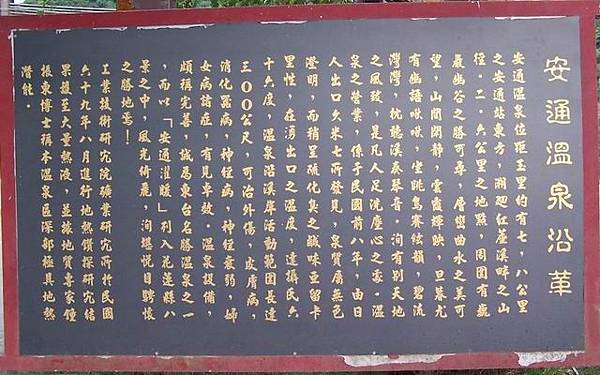 安通溫泉沿革
安通溫泉位距玉里約有七,八公里
之安通站東方,溯迎紅座溪畔之山
徑.二.六公里之地點,周圍有巍
巖幽谷之勝可尋,層巒曲水之美可
望,山間閒靜,雲霞輝映,旦暮尤
有幽語啾啾,坐眺鳥賽絃韻,碧流
灣灣,枕聽溪奏琴音。洵有別天地
之風致,是凡人足洗塵心之處。溫
泉之營業,係于民國前八年,由日
人出口久米七所發見,泉質屬無色
澄明,而稍呈硫化臭之鹹味亞留卡
里性,在湧出口之溫度,達攝氏六
十六度,溫泉沿溪岸活動範圍長達
三00公尺,可治外傷,皮膚病,
消化器病,神經病,神經衰弱,婦
女病諸症,有見卓效。溫泉設備,
頗稱完善,誠為東台名勝溫泉之一
,而以「安通濯暖」列入花蓮縣八
景之中,風光倚麗,洵堪悅目騁懷
之勝地焉!
工業技術研究院礦業研究所於民國
六十九年八月進行地熱鑽探研究結
果獲至大量熱液,並據地質專家鍾
振東博士稱本溫泉區深部極具地熱
潛能。